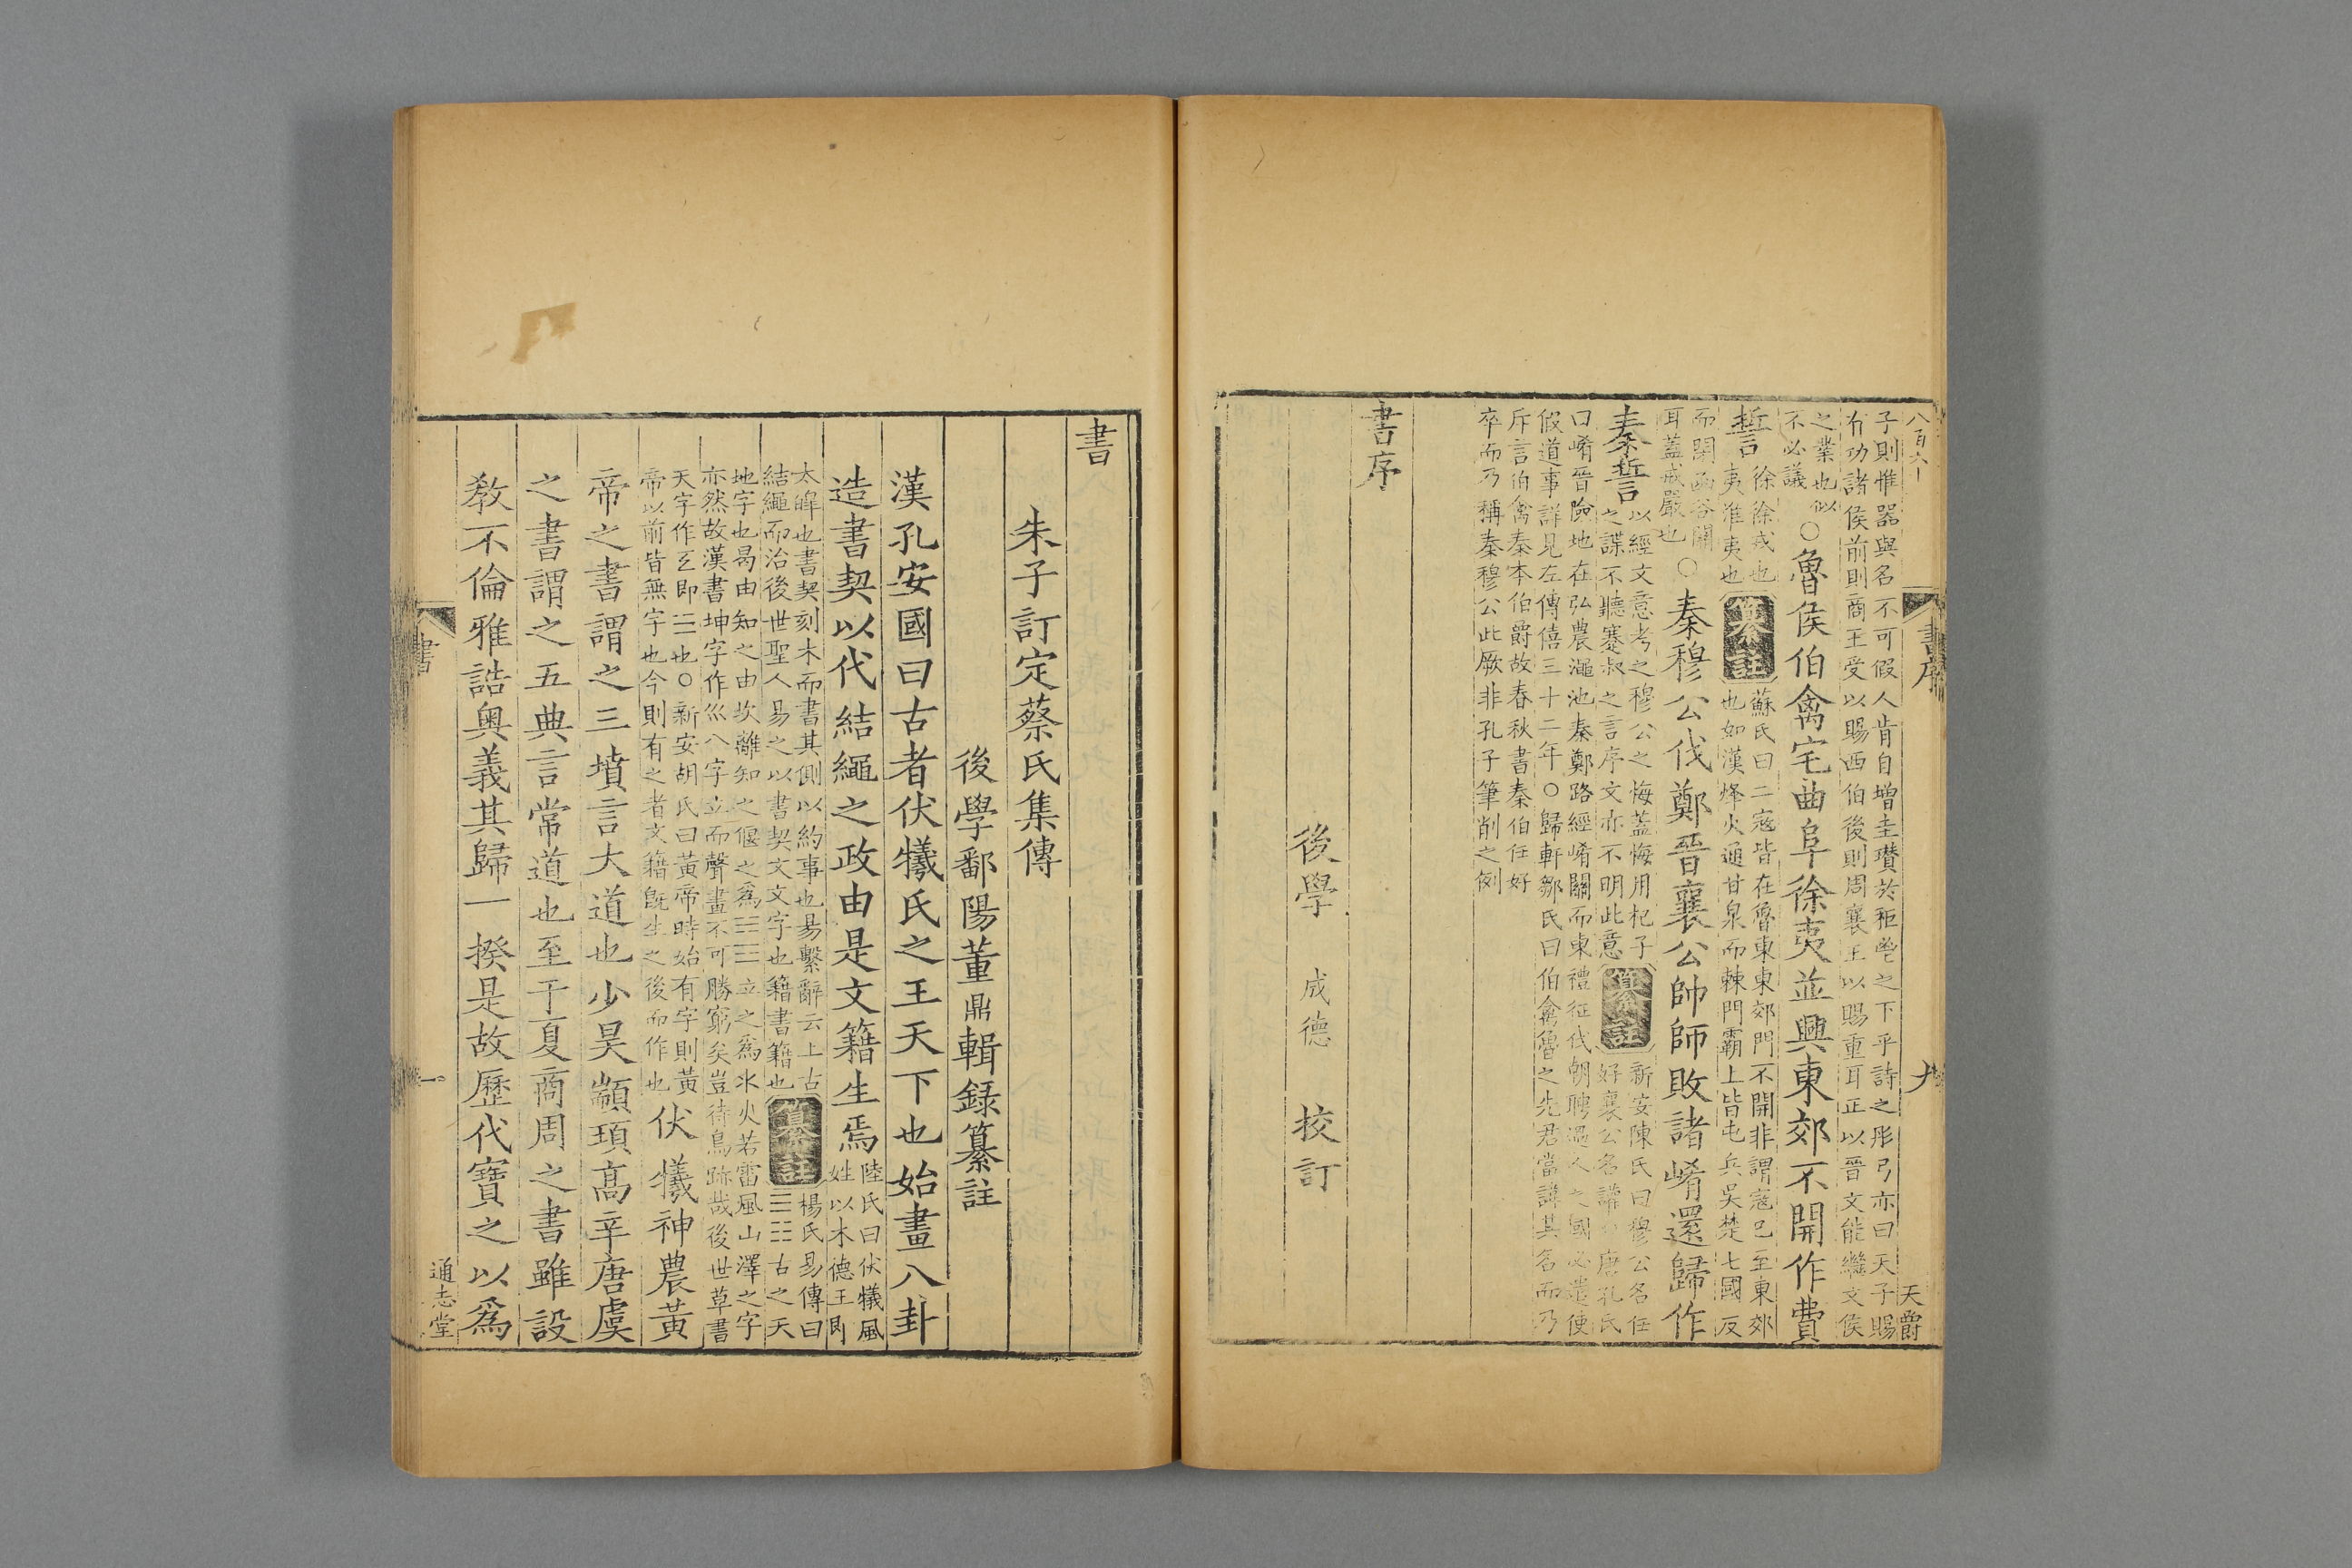 八百六十
天爵
書序
九
子則惟器與名不可假人肯自增圭瓚於秬鬯之下乎詩之彤弓亦曰天子賜
有功諸侯前則商王受以賜西伯後則周襄王以賜重耳正以晉文能繼文侯
之業也似
不必議
○魯侯伯禽宅曲阜徐夷並興東郊不開作費
誓
徐徐戎也
夷淮夷也
纂註
蘇氏曰二寇皆在魯東東郊門不開非謂寇已至東郊
也如漢烽火通甘泉而棘門霸上皆屯兵吳楚七國反
而閉函谷關
耳蓋戒嚴也
○秦穆公伐鄭晉襄公帥師敗諸崤還歸作
秦誓
以經文意考之穆公之悔蓋悔用杞子
之謀不聽蹇叔之言序文亦不明此意
纂註
新安陳氏曰穆公名任
好襄公名讙唐孔氏
曰崤晉險地在弘農澠池秦鄭路經崤關而東禮征伐朝聘過人之國必遣使
假道事詳見左傳僖三十二年○歸軒鄒氏曰伯禽魯之先君當諱其名而乃
斥言伯禽秦本伯爵故春秋書秦伯任好
卒而乃稱秦穆公此厥非孔子筆削之例
書序
後學 成德 挍訂
書
朱子訂定蔡氏集傳
後學鄱陽董鼎輯録纂註
漢孔安國曰古者伏犧氏之王天下也始畫八卦
造書契以代結繩之政由是文籍生焉
陸氏曰伏犧風
姓以木德王即
太皥也書契刻木而書其側以約事也易繫辭云上古
結繩而治後世聖人易之以書契文文字也籍書籍也
纂註
楊氏易傳曰
☰☷古之天
地字也曷由知之由坎離知之偃之為☵☲立之為水火若雷風山澤之字
亦然故漢書坤字作巛八字立而聲畫不可勝窮矣豈待鳥跡哉後世草書
天字作𠀑即☰也○新安胡氏曰黃帝時始有字則黃
帝以前皆無字也今則有之者文籍既生之後而作也
伏犧神農黃
帝之書謂之三墳言大道也少昊顓頊高辛唐虞
之書謂之五典言常道也至于夏商周之書雖設
教不倫雅誥奧義其歸一揆是故歷代寶之以為
書
一
通志堂